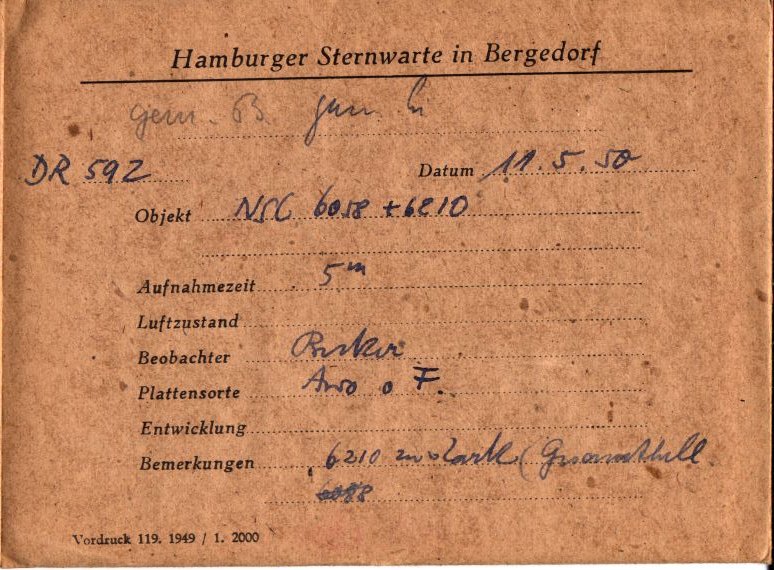 Hamburger Sternwarte in Bergedorf
gem. B. gem
DR 592 Datum 11.5.50
Objekt NGC 6058 + 6210
Aufnahmezeit 5m
Luftzustand
Beobachter
Plattensorte o F.
Entwicklung
Bemerkungen 6210 zu stark (
Vordruck 119. 1949 / 1. 2000